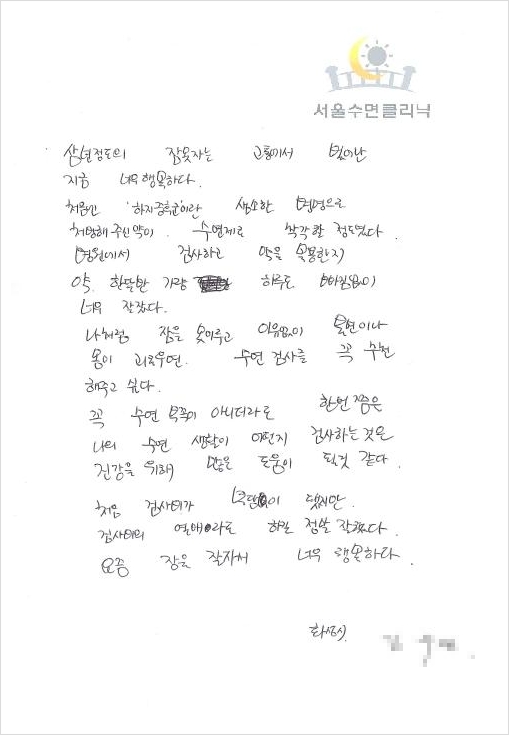 서울수면클리닉
삼년정도의 잠못자는 고통에서 벗어난
지금 너무 행복하다.
처음엔 '하지증후군'이란 생소한 병명으로
처방해 주신 약이 수면제로 착각할 정도였다.
병원에서 검사하고 약을 복용한지
약 한달반 가량 하루도 빠짐없이
너무 잘잤다.
나처럼 잠을 못이루고 이유없이 불면이나
몸이 괴로우면. 수면 검사를 꼭 추천
해주고 싶다.
꼭 수면 목적이 아니더라도 한번쯤은
나의 수면 생활이 어떤지 검사하는 것은
건강을 위해 많은 도움이 될것 같다.
처음 검사비가 부담이 됐지만.
검사비의 열배라도 하길 정말 잘했다.
요즘 잠을 잘자서 너무 행복하다.
화성시.